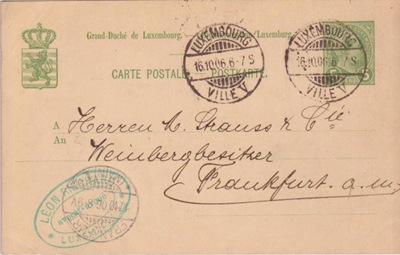 Grand-Duché de Luxembourg.
Luxemburg.
CARTE POSTALE POSTKARTE.
LUXEMBOURG
16.10.06.6-7S
VILLE V
LUXEMBOURG
16.10.06.6-7S
VILLE V
5
A Herren A. Strauss & Cie
An
Weinbergbesitzer
Frankfurt a. m.
LÉON
LUXEMB